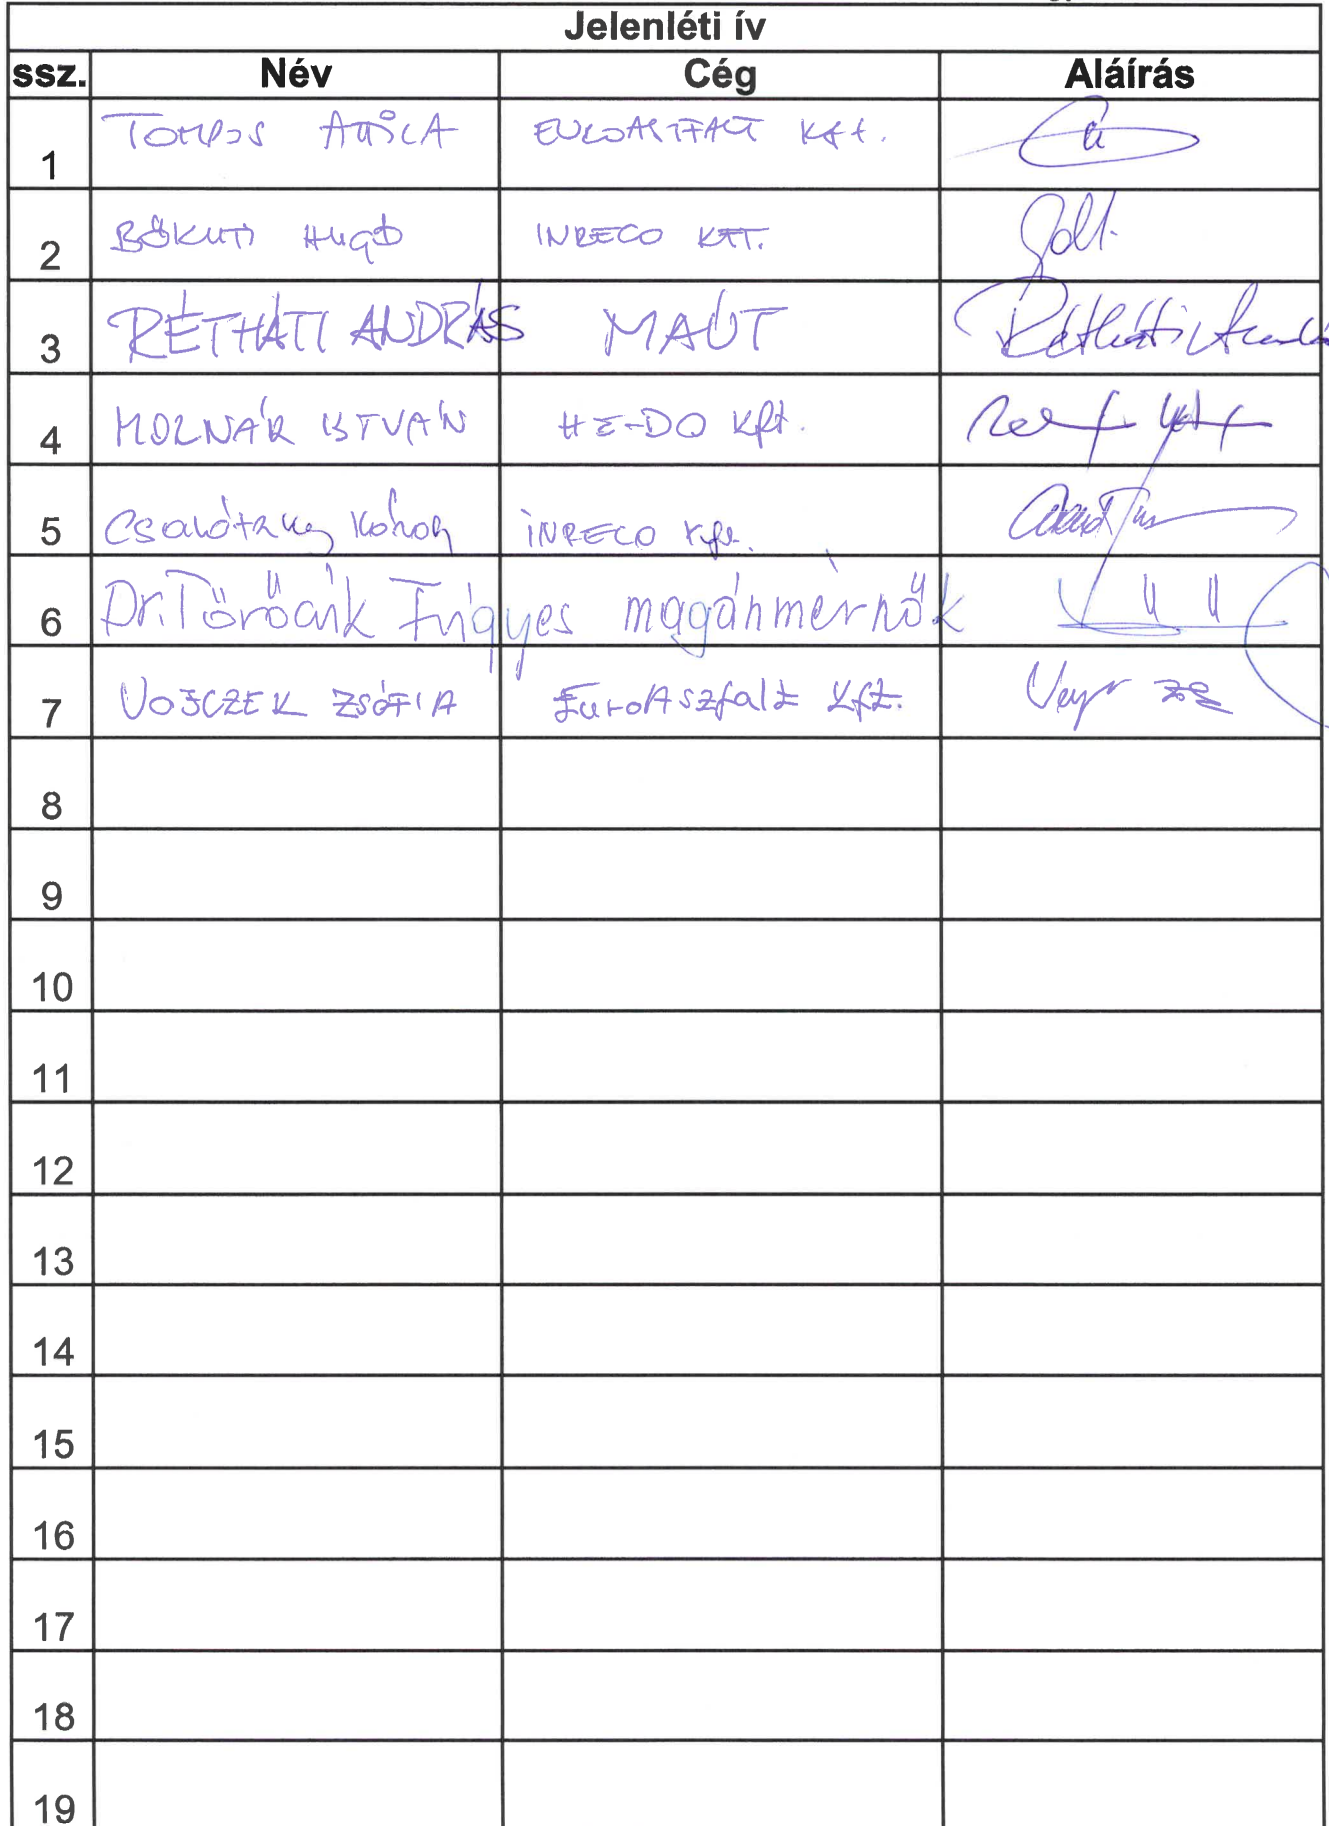 Jelenléti ív
ssz. Név Cég Aláírás
1 TOMPOS ATTILA EUROASZFALT Kft.
2 HUGÓ INRECO KFT.
3 RÉTHÁTI ANDRÁS MAÚT Rétháti András
4 MOLNÁR ISTVÁN HE-DO Kft.
5 INRECO Kft.
6 Dr. Törőcsik Frigyes magánmérnök
7 VOJCZEK ZSÓFIA EuroAszfalt Kft.
8
9
10
11
12
13
14
15
16
17
18
19